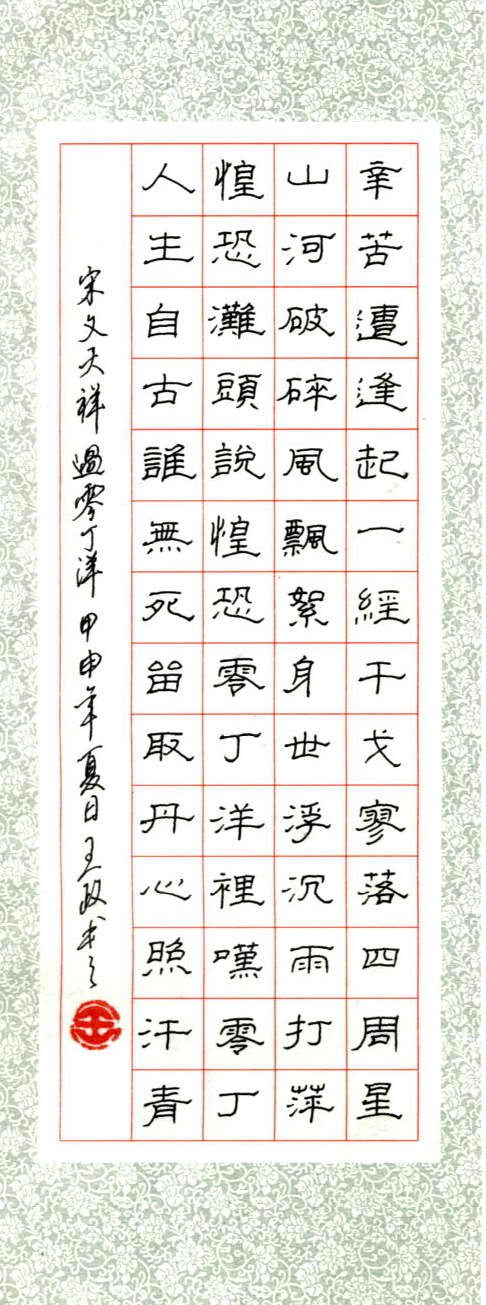 辛苦遭逢起一經干戈寥落四周星
山河破碎風飄絮身世浮沉雨打萍
惶恐灘頭說惶恐零丁洋裡嘆零丁
人生自古誰無死留取丹心照汗青
宋文天祥過零丁洋甲申年夏日王政書